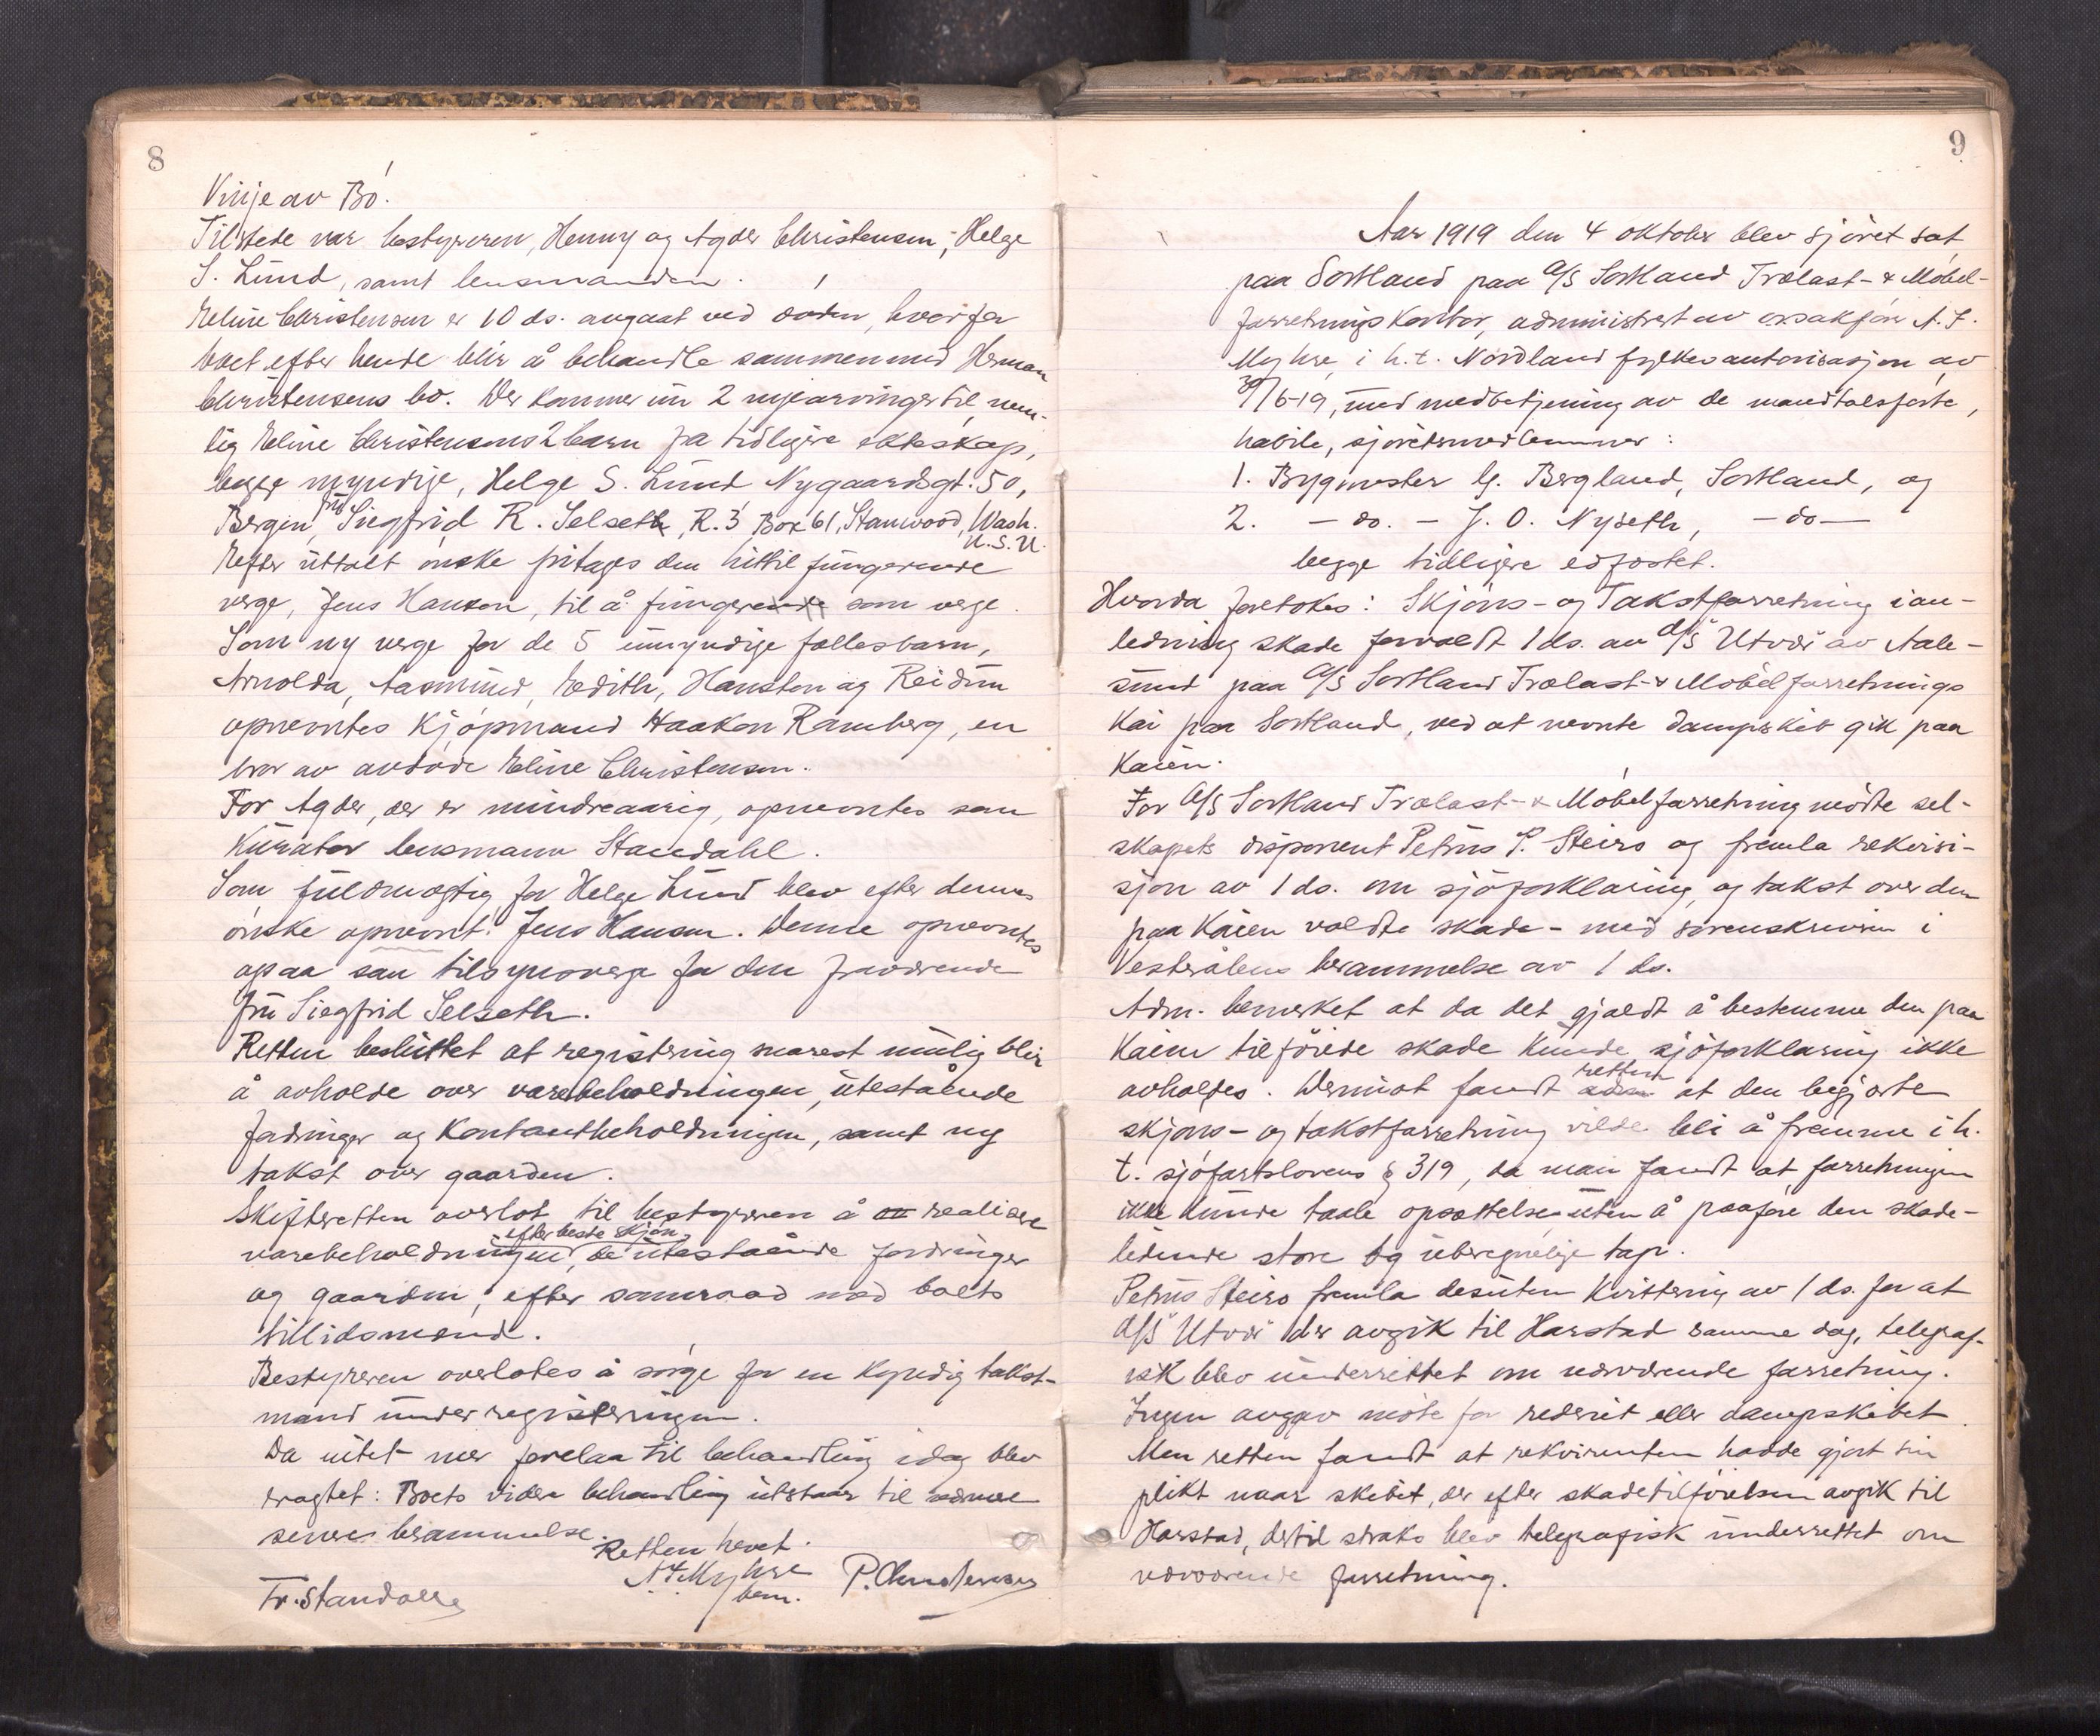 8
Vinje av Bö.
Tilstede var bestyreren, Henny og Agder Christensen, Helge
S. Lund, samt lensmanden.
Eline Christensen er 10 ds. avgaat ved döden, hvorfor
boet efter hende blir å behandle sammen med Herman
Christensens bo. Der kommer nu 2 nye arvinger til, nem-
lig Eline Christensens 2 barn fra tidligere ekteskap,
begge myndige, Helge S. Lund Nygaardsgt. 50,
Bergen, fru Siegfrid R. Selseth, R. 3 Box 61, Stanwood, Wash.
U.S.A.
Efter uttalt önske fritages den hittil fungerende
verge, Jens Hansen, til å fungere som verge.
Som ny verge for de 5 umyndige fellesbarn,
Arnolda, Aasmund, Edith, Hauston og Reidun
opnevntes kjöpmand Haakon Ramberg, en
bror av avdöde Eline Christensen.
For Agder, der er mindreaarig, opnevntes som
kurator lensmann Standahl.
Som fuldmægtig for Helge Lund blev efter dennes
önske opnevnt Jens Hansen. Denne opnevntes
ogsaa som tilsynsverge for den fraværende
fru Siegfrid Selseth.
Retten besluttet at registrering snarest mulig blir
å avholde over varebeholdningen, utestående
fordringer og kontantbeholdningen, samt ny
takst over gaarden.
Skifteretten overlot til bestyreren å realisere
efter beste skjön,
varebeholdningen, de utestående fordringer
og gaarden, efter samraad med boets
tillidsmend.
Bestyreren overlotes å sörge for en kyndig takst-
mand under registreringen.
Da intet mer forelaa til behandling idag blev
eragtet: Boets videre behandling utstaar til nærmere
senere berammelse.
Retten hevet.
A. F. Myhre
bem.
P. Christensen
Fr. Standahl
9
Aar 1919 den 4 oktober blev sjöret sat
paa Sortland paa A/S Sortland Trælast- & Möbel-
forretnings kontor, administrert av A. F.
Myhre, i h.t. Nordland fylkes autorisasjon av
30/6-19, med medbetjening av de mandtalsförte,
habile, sjöretsmedlemmer:
1. Bygmester G. Bergland, Sortland, og
2. - do. - J. O. Nyseth, - do -
begge tidligere edfæstet.
Hvorda foretokes: Skjöns- og Takstforretning i an-
ledning skade forvoldt 1 ds. av d/s "Utvær" av Aale-
sund paa A/S Sortland Trælast- & Möbelforretnings
kai paa Sortland, ved at nevnte dampskib gik paa
kaien.
For A/S Sortland Trælast- & Möbelforretning mötte sel-
skapets disponent Petrus P. Steiro og fremla rekvisi-
sjon av 1 ds. om sjöforklaring, og takst over den
paa kaien voldte skade - med sorenskriveren i
Vesterålens berammelse av 1 ds.
Adm. bemerket at da det gjældt å bestemme den paa
kaien tilförede skade kunde sjöforklaring ikke
avholdes. Derimot fandt retten at den begjærte
skjöns- og takstforretning vilde bli å fremme i h.
t. sjöfartslovens § 319, da man fandt at forretningen
ikke kunde taale opsættelse uten å paaföre den skade-
lidende store og uberegnelige tap.
Petrus Steiro fremla desuten kvittering av 1 ds. for at
d/s "Utvær" der avgik til Harstad samme dag, telegraf-
isk blev underrettet om nærværende forretning.
Ingen avgav möte for rederiet eller dampskibet.
Men retten fandt at rekvirenten hadde gjort sin
plikt naar skibet, der efter skadetilförelsen avgik til
Harstad, dertil straks blev telegrafisk underrettet om
nærværende forretning.